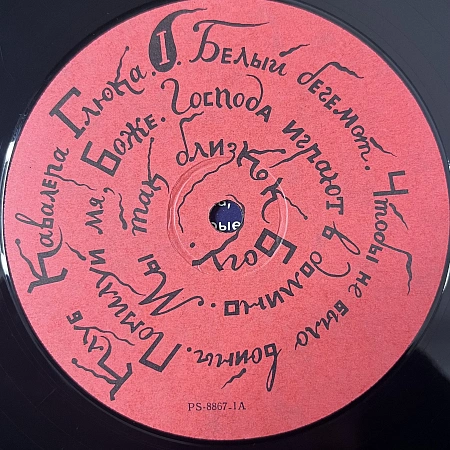 Клуб Кавалера Глюка. I. Белый бегемот. Чтобы не было войны.
Помилуй мя, Боже. Господа играют в домино.
Мы так близки к Богу.
PS-8867-1A